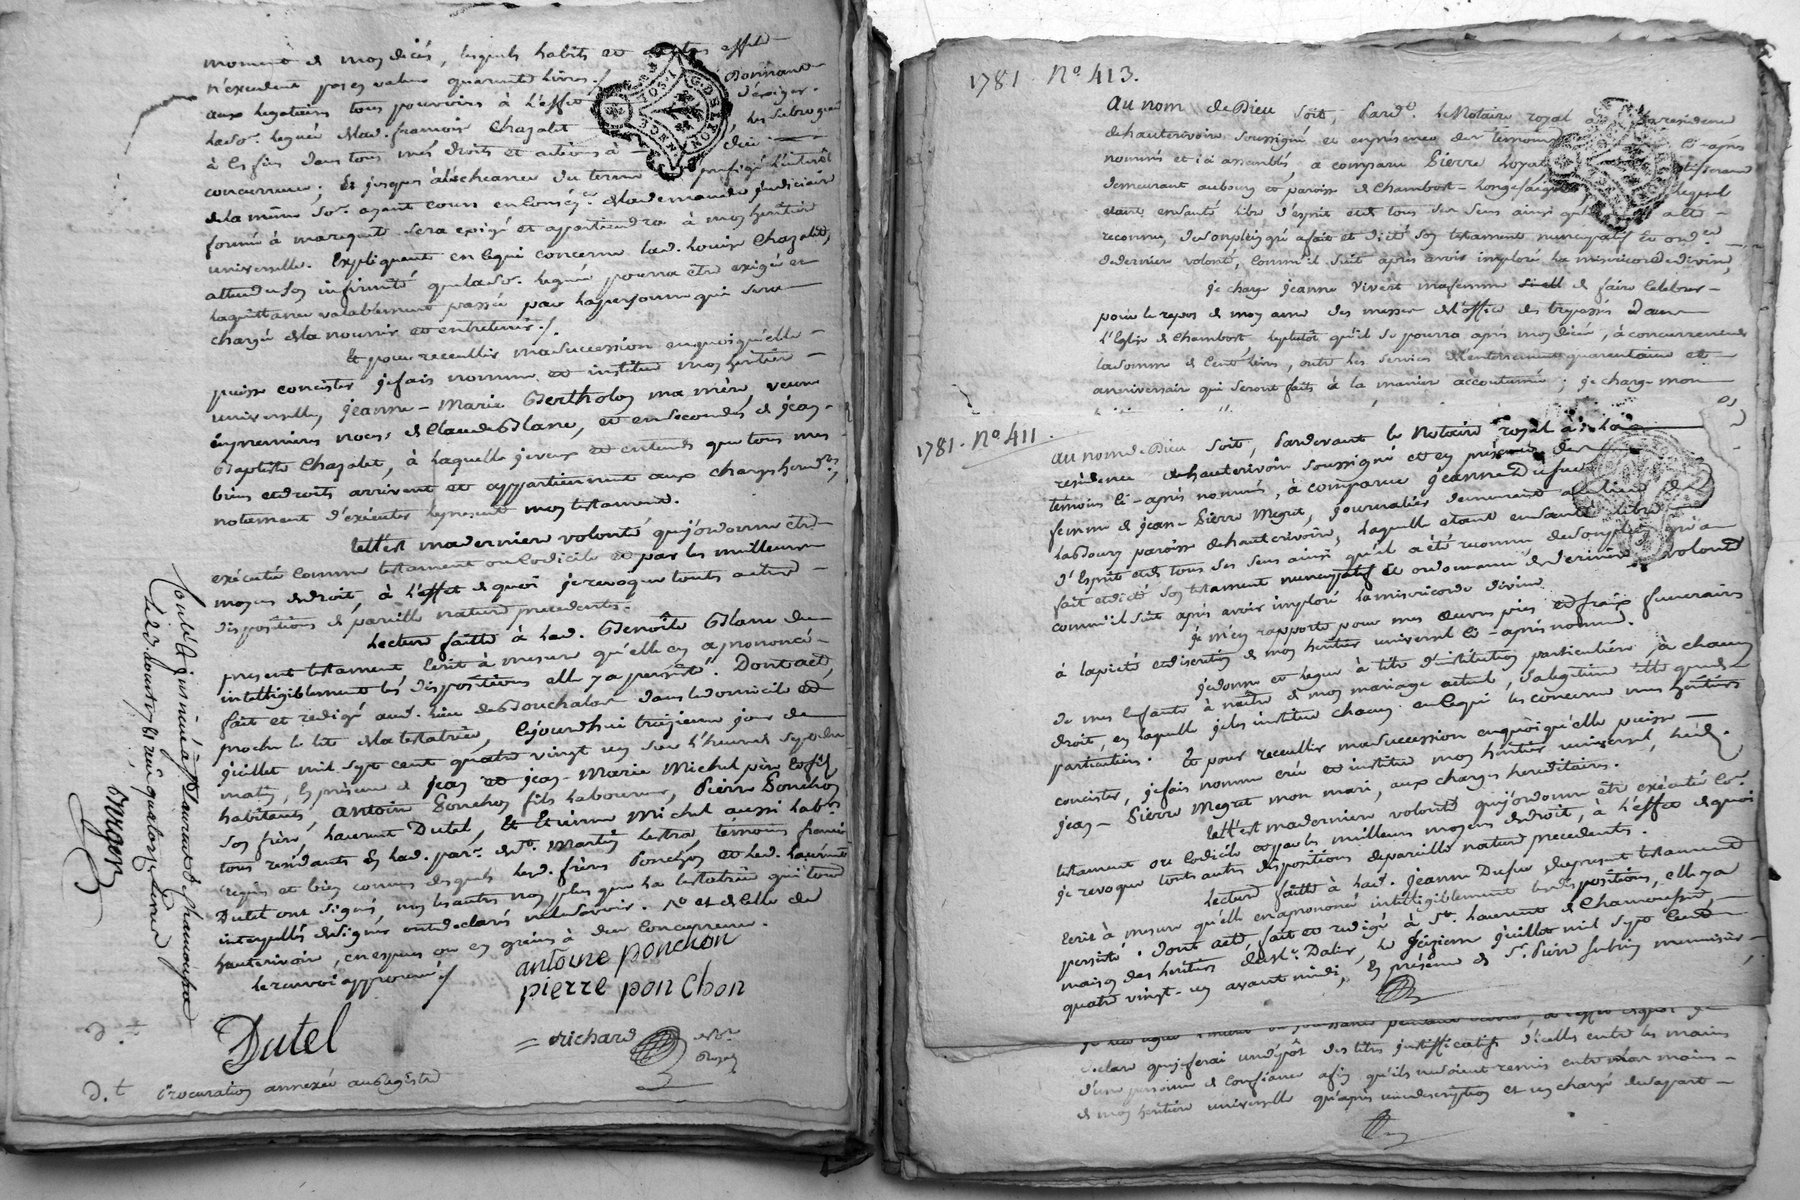 moment de mon décès, lesquels habits et autres effets
n'excedent pas en valeur quarante livres ./.
aux legataires tous pouvoirs à l'effet
lad. so. leguée aud. françois Chazalet
à ces fins dans tous mes droits et actions à
concurrence, et jusques à l'échéance du terme préfigé l'intérêt
de la même so. ayant cours en conséq.ce de la demande judiciaire
formée à ma requete sera exigé et appartiendra à mon héritière
universelle. Expliquant en ce qui concerne lad. Louise Chazalet,
attendu son infirmité que la so. leguée pourra être exigée et
la quittance valablement passée par la personne qui sera
chargée de la nourrir et entretenir ./.
Et pour recueillir ma succession en quoi qu'elle
puisse concister je fais nomme et institue mon héritière
universelle, Jeanne-Marie Bertholon ma mère, veuve
en premieres noces de Claude Blanc, et en secondes de Jean-
Baptiste Chazalet, à laquelle je veux et entends que tous mes
biens et droits arrivent et appartiennent aux charges hered.res,
notament d'exécuter le present mon testament.
telle est ma derniere volonté que j'ordonne être
exécutée comme testament ou codicile et par les meilleurs
moyens de droit, à l'effet de quoi je revoque toutes autres
dispositions de pareille nature precedentes.
Lecture faitte à lad. Benoîte Blanc du
present testament écrit à mesure qu'elle en a prononcé
intelligiblement les dispositions elle y a persisté. Dont acte,
fait et redigé aud. lieu de Bouchalas dans le domicile et
proche le lit de la testatrice, cejourd'hui treizieme jour de
juillet mil sept cent quatre vingt un sur l'heure de sept du
matin, en présence de Jean et Jean-Marie Michel père et fils
habitants, antoine Ponchon fils laboureur, Pierre Ponchon
son frère, Laurent Dutel, et Etienne Michel aussi lab.rs
tous résidants en lad. par. de St. Martin Lestra témoins
requis et bien connus desquels lesd. frères Ponchon et led. Laurent
Dutel ont signé, non les autres non plus que la testatrice qui tous
interpellés de signer ont declaré ne le savoir.
hauterivoire, en especes ou en grains à due concurrence.
le renvoi approuvé ./.
antoine ponchon
pierre ponchon
Dutel
Richard
No.re Royal
d.t Procuration annexée au Registre
Contrôlé
1781 N° 413.
au nom de Dieu soit, Pard.t le Notaire royal à la residence
de hauterivoire soussigné et en présence des temoins ci-après
nommés et ici assemblés, a comparu Pierre
demeurant au bourg et paroisse de Chambost-Longessaigne lequel
etant en santé libre d'esprit et de tous ses sens ainsi qu'il a été
reconnu, de son plein gré a fait et dicté son testament nuncupatif et ord.ce
de derniere volonté, comm'il suit après avoir imploré la misericorde divine,
je charge jeanne Vivert ma femme de faire celebrer
pour le repos de mon ame des messes de l'office des trepassés dans
l'Eglise de Chambost le plutôt qu'il se pourra après mon décès, à concurrence de
la somme de cent livres, outre les services d'enterrement quarantaine et
anniversaire qui seront faits à la maniere accoutumée ; je charge mon
1781. N° 411.
au nom de Dieu soit, Pardevant le Notaire royal à la
résidence de hauterivoire soussigné et en présence des
témoins ci-après nommés, a comparu Jeanne Dufue
femme de Jean-Pierre Megret, journalier demeurant au lieu de
paroisse de hauterivoire, laquelle etant en santé libre
d'Esprit et de tous ses sens ainsi qu'il a été reconnu de son plein gré a
fait et dicté son testament nuncupatif et ordonnance de derniere volonté
comm'il suit après avoir imploré la misericorde divine.
je m'en rapporte pour mes œuvres pies et fraix funeraires
à la piété et discrétion de mon héritier universel ci-après nommé.
je donne et legue à titre d'institution particulière à chacun
de mes enfants à naître de mon mariage actuel, sa legitime telle que de
droit, en laquelle je les institue chacun en ce qui les concerne mes héritiers
particuliers. Et pour recueillir ma succession en quoi qu'elle puisse
concister, je fais nomme crée et institue mon héritier universel, led.
Jean-Pierre Megret mon mari, aux charges hereditaires.
telle est ma derniere volonté que j'ordonne être exécutée co.e
testament ou codicile et par les meilleurs moyens de droit, à l'effet de quoi
je revoque toutes autres dispositions de pareille nature precedentes.
Lecture faitte à lad. Jeanne Dufue du present testament
écrit à mesure qu'elle en a prononcé intelligiblement les dispositions, elle y a
persisté. Dont acte, fait et redigé à St. Laurent de Chamousset,
maison des heritiers de Dalier, le seizieme juillet mil sept cent
quatre vingt-un avant midi, en présence de Sr. Pierre menuisier,
declare que je ferai un dépôt des titres justificatifs d'icelles entre les mains
d'une personne de confiance afin qu'ils ne soient remis entre mains
de mon heritiere universelle qu'après une description et un chargé de sa part